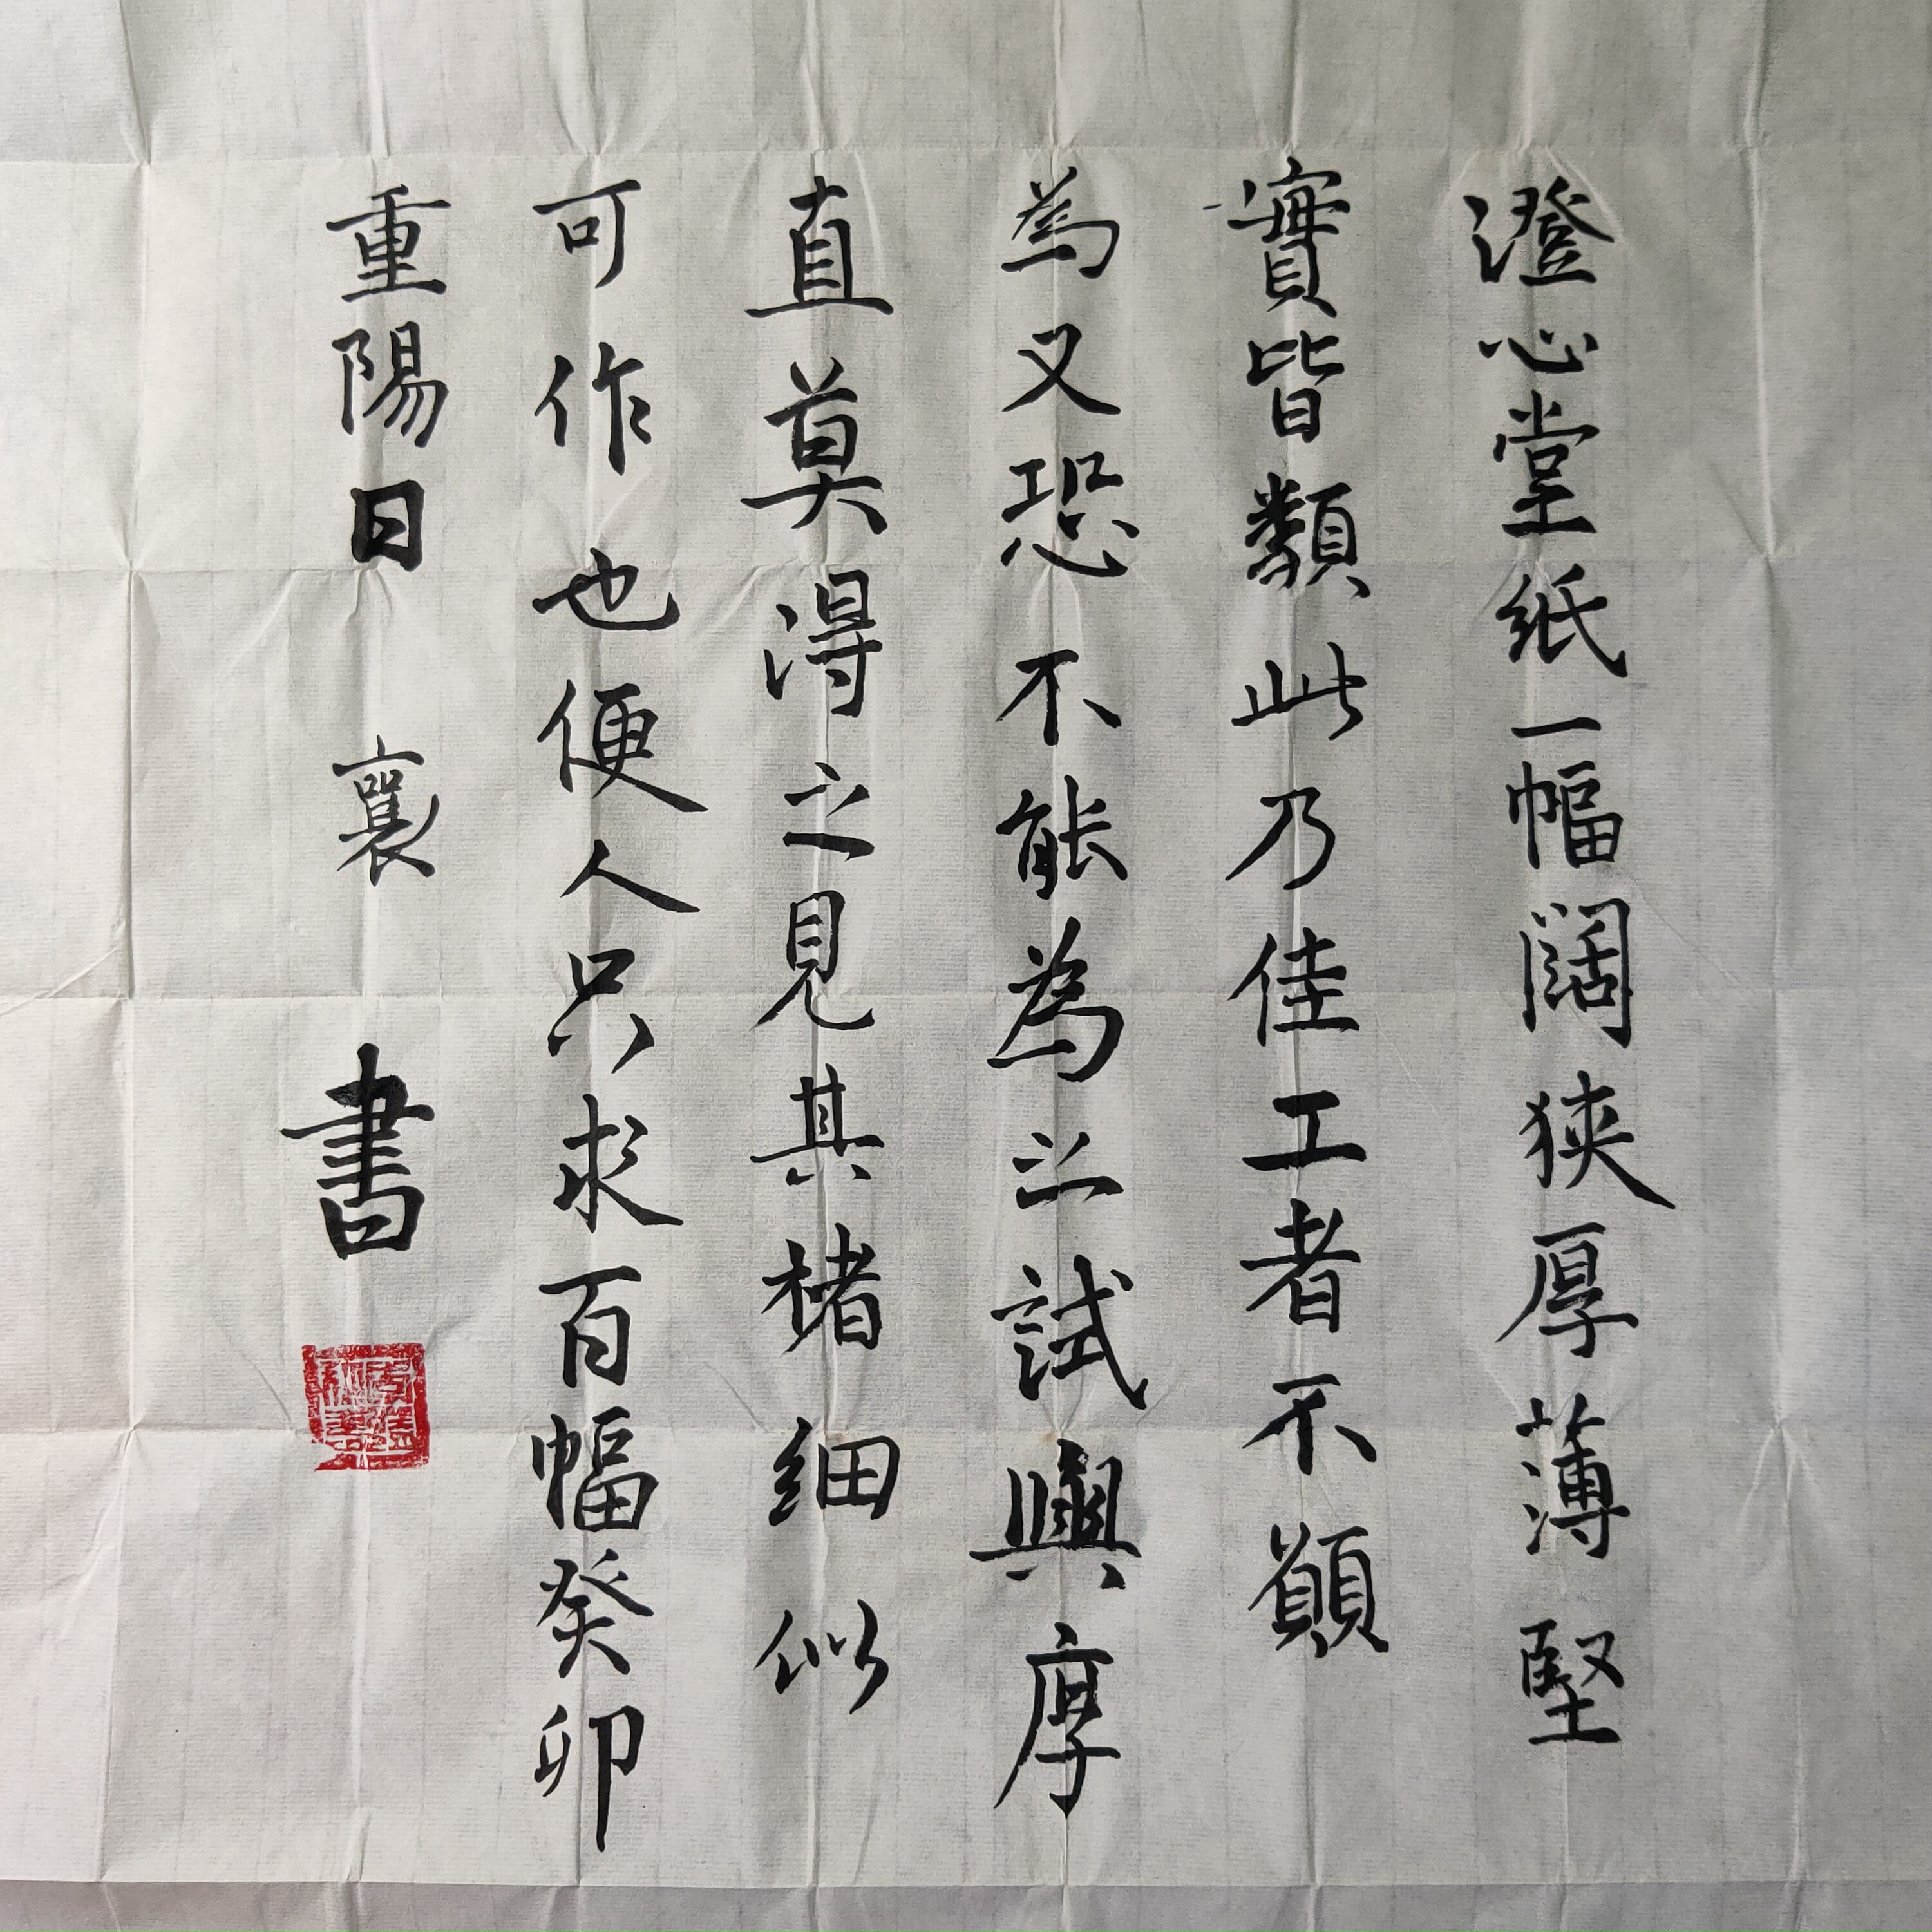 澄心堂紙一幅闊狹厚薄堅
實皆類此乃佳工者不願
為又恐不能為之試與厚
直莫得之見其楮細似
可作也便人只求百幅癸卯
重陽日襄書